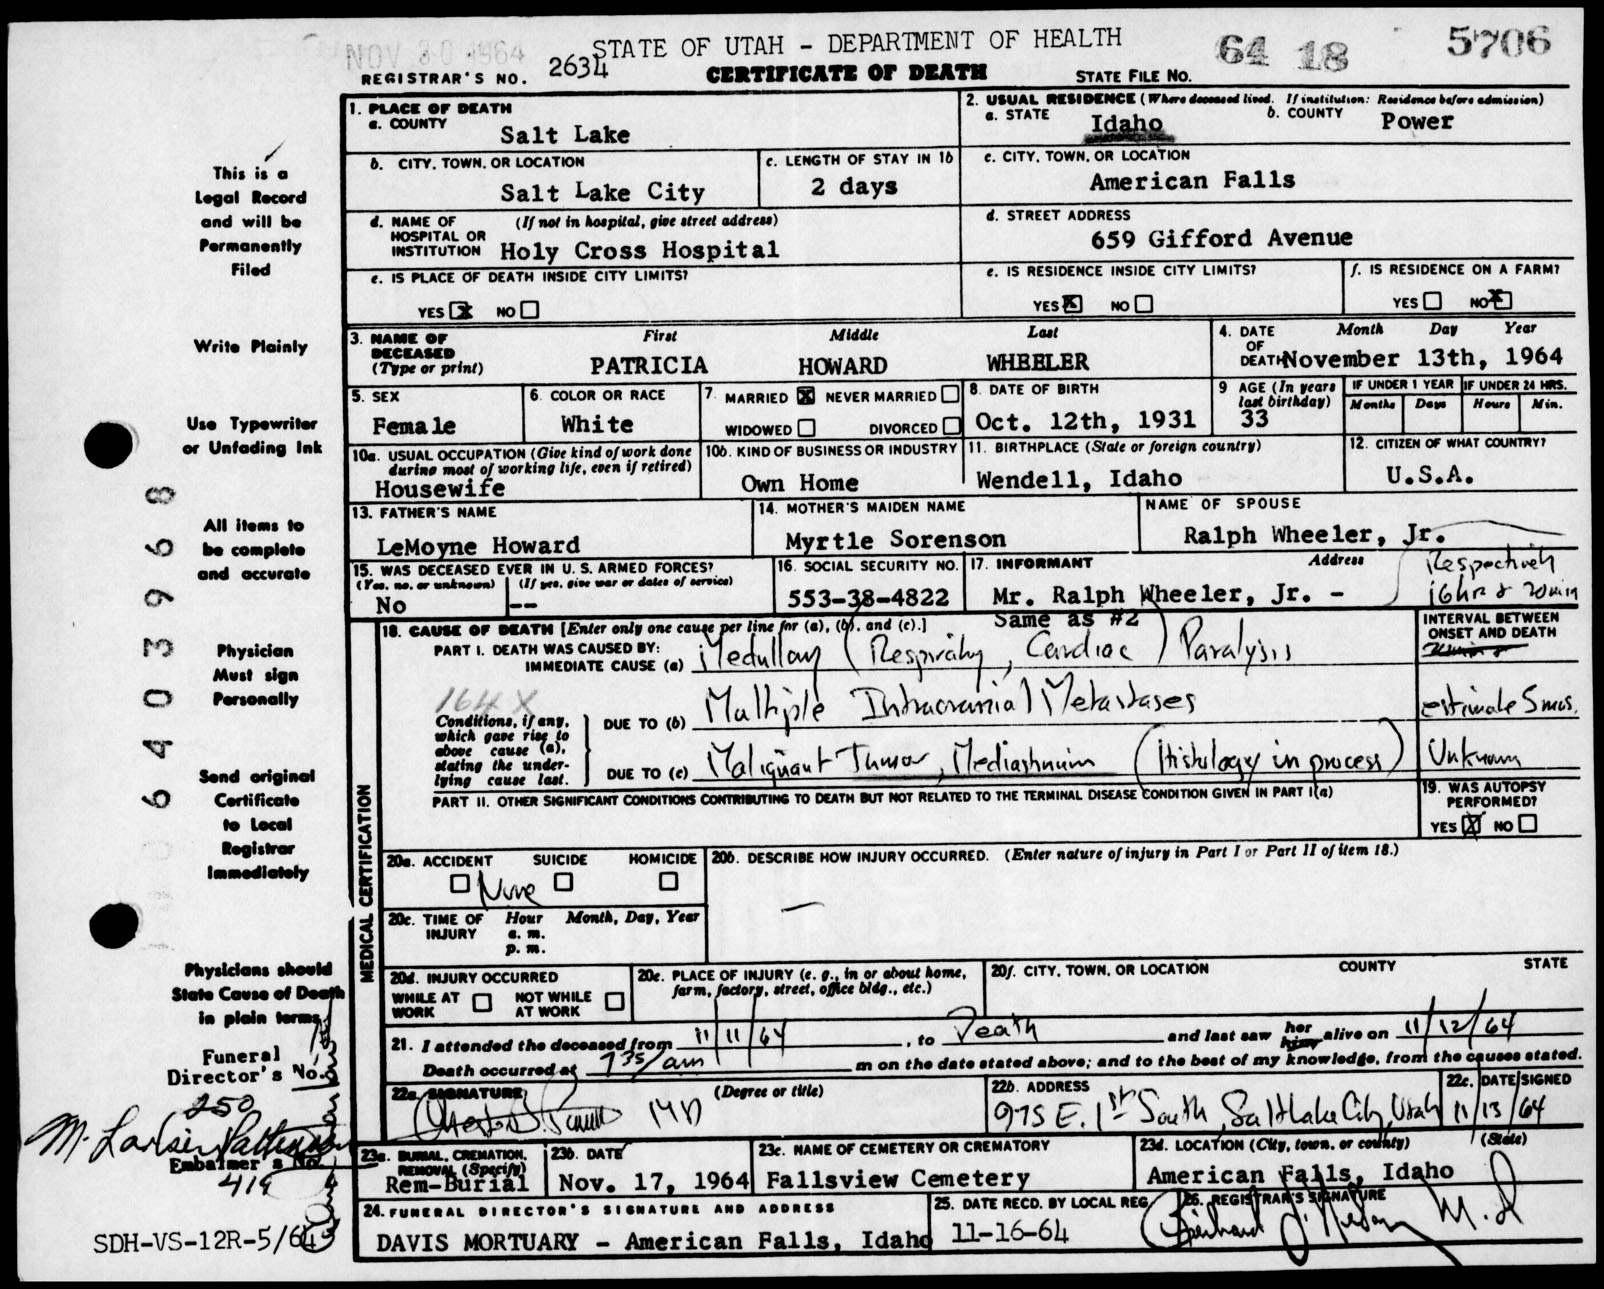 NOV 30 1964
STATE OF UTAH - DEPARTMENT OF HEALTH
64 18 5706
REGISTRAR'S NO. 2634
CERTIFICATE OF DEATH
STATE FILE NO.
This is a
Legal Record
and will be
Permanently
Filed
Write Plainly
Use Typewriter
or Unfading Ink
All items to
be complete
and accurate
Physician
Must sign
Personally
Send original
Certificate
to Local
Registrar
Immediately
Physicians should
State Cause of Death
in plain terms
Funeral
Director's No.
250
Embalmer's No.
419
SDH-VS-12R-5/64
6403968
1. PLACE OF DEATH
a. COUNTY
Salt Lake
2. USUAL RESIDENCE (Where deceased lived. If institution: Residence before admission)
a. STATE Idaho b. COUNTY Power
b. CITY, TOWN, OR LOCATION
Salt Lake City
c. LENGTH OF STAY IN 1b
2 days
c. CITY, TOWN, OR LOCATION
American Falls
d. NAME OF HOSPITAL OR INSTITUTION (If not in hospital, give street address)
Holy Cross Hospital
d. STREET ADDRESS
659 Gifford Avenue
e. IS PLACE OF DEATH INSIDE CITY LIMITS?
YES X NO
e. IS RESIDENCE INSIDE CITY LIMITS?
YES X NO
f. IS RESIDENCE ON A FARM?
YES NO X
3. NAME OF DECEASED (Type or print)
First Middle Last
PATRICIA HOWARD WHEELER
4. DATE OF DEATH Month Day Year
November 13th, 1964
5. SEX
Female
6. COLOR OR RACE
White
7. MARRIED X NEVER MARRIED
WIDOWED DIVORCED
8. DATE OF BIRTH
Oct. 12th, 1931
9 AGE (In years last birthday)
33
IF UNDER 1 YEAR IF UNDER 24 HRS.
Months Days Hours Min.
10a. USUAL OCCUPATION (Give kind of work done during most of working life, even if retired)
Housewife
10b. KIND OF BUSINESS OR INDUSTRY
Own Home
11. BIRTHPLACE (State or foreign country)
Wendell, Idaho
12. CITIZEN OF WHAT COUNTRY?
U.S.A.
13. FATHER'S NAME
LeMoyne Howard
14. MOTHER'S MAIDEN NAME
Myrtle Sorenson
NAME OF SPOUSE
Ralph Wheeler, Jr.
15. WAS DECEASED EVER IN U. S. ARMED FORCES?
(Yes, no, or unknown) (If yes, give war or dates of service)
No --
16. SOCIAL SECURITY NO.
553-38-4822
17. INFORMANT Address
Mr. Ralph Wheeler, Jr. -
Same as #2
Respectively
16 hr & 20 min
MEDICAL CERTIFICATION
18. CAUSE OF DEATH [Enter only one cause per line for (a), (b), and (c).]
INTERVAL BETWEEN ONSET AND DEATH
PART I. DEATH WAS CAUSED BY:
IMMEDIATE CAUSE (a) Medullary (Respiratory, Cardiac) Paralysis
164 X
Conditions, if any, which gave rise to above cause (a), stating the underlying cause last.
DUE TO (b) Multiple Intracranial Metastases
estimate 5 mos.
DUE TO (c) Malignant Tumor, Mediastinum (Histology in process)
Unknown
PART II. OTHER SIGNIFICANT CONDITIONS CONTRIBUTING TO DEATH BUT NOT RELATED TO THE TERMINAL DISEASE CONDITION GIVEN IN PART I(a)
19. WAS AUTOPSY PERFORMED?
YES X NO
20a. ACCIDENT SUICIDE HOMICIDE
None
20b. DESCRIBE HOW INJURY OCCURRED. (Enter nature of injury in Part I or Part II of item 18.)
—
20c. TIME OF INJURY Hour Month, Day, Year
a. m.
p. m.
20d. INJURY OCCURRED
WHILE AT WORK NOT WHILE AT WORK
20e. PLACE OF INJURY (e. g., in or about home, farm, factory, street, office bldg., etc.)
20f. CITY, TOWN, OR LOCATION COUNTY STATE
21. I attended the deceased from 11/11/64, to Death and last saw her him alive on 11/12/64
Death occurred at 7 35/am m on the date stated above; and to the best of my knowledge, from the causes stated.
22a. SIGNATURE (Degree or title)
MD
22b. ADDRESS
975 E. 1st South, Salt Lake City, Utah
22c. DATE SIGNED
11/13/64
23a. BURIAL, CREMATION, REMOVAL (Specify)
Rem-Burial
23b. DATE
Nov. 17, 1964
23c. NAME OF CEMETERY OR CREMATORY
Fallsview Cemetery
23d. LOCATION (City, town, or county) (State)
American Falls, Idaho
24. FUNERAL DIRECTOR'S SIGNATURE AND ADDRESS
DAVIS MORTUARY - American Falls, Idaho
25. DATE RECD. BY LOCAL REG.
11-16-64
26. REGISTRAR'S SIGNATURE
M.D